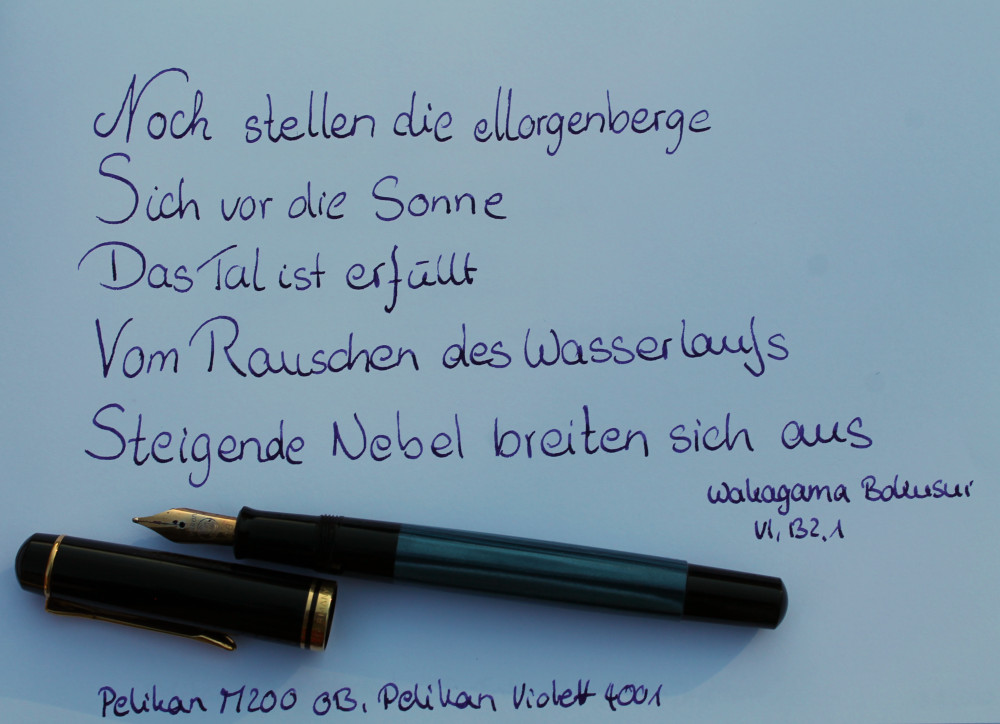 Noch stellen die Morgenberge
Sich vor die Sonne
Das Tal ist erfüllt
Vom Rauschen des Wasserlaufs
Steigende Nebel breiten sich aus
Wakagama Bokusui
VI, B2,1
Pelikan M200 OB, Pelikan Violett 4001